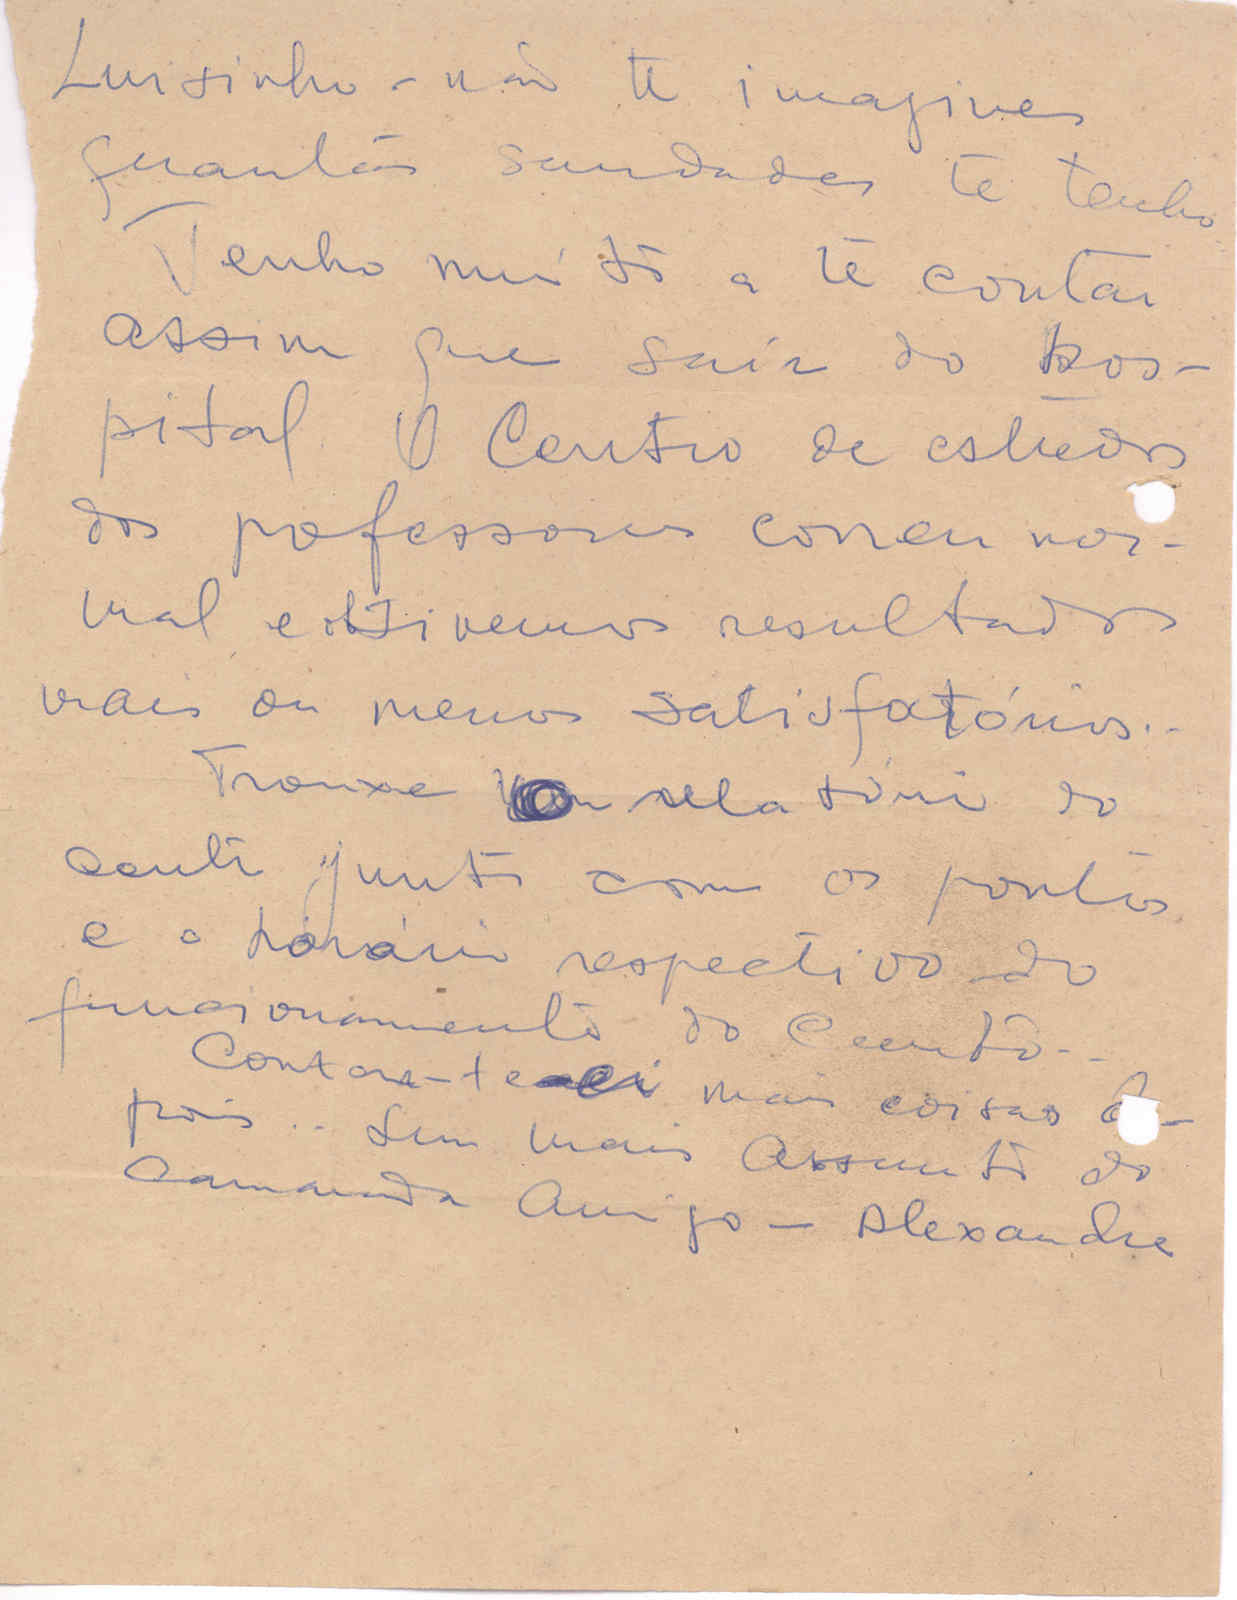 Luisinho - não te imagines
quantas saudades te tenho
Tenho muito a te contar
assim que sair do hos-
pital. O Centro de estudos
dos professores correu nor-
mal e obtivemos resultados
mais ou menos satisfatórios..
Trouxe um relatório do
centro junto com os pontos
e o horário respectivo do
funcionamento do Centro..
Contar-te-ei mais coisas de-
pois.. Sem mais assunto do
camarada Amigo - Alexandre